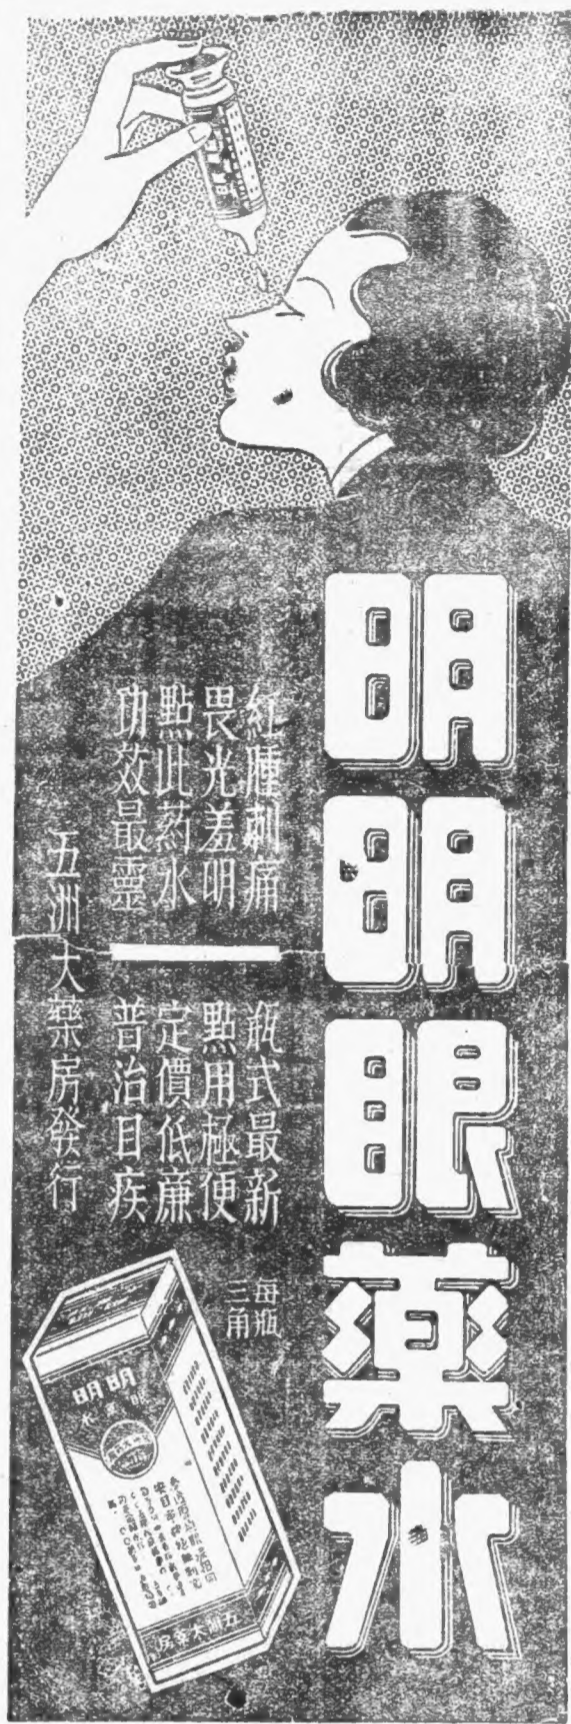 明明眼藥水
紅腫刺痛
畏光羞明
點此药水
功效最靈
瓶式最新
點用極便
定價低廉
普治目疾
每瓶
三角
五洲大藥房發行
明明
眼藥水
五洲大藥房